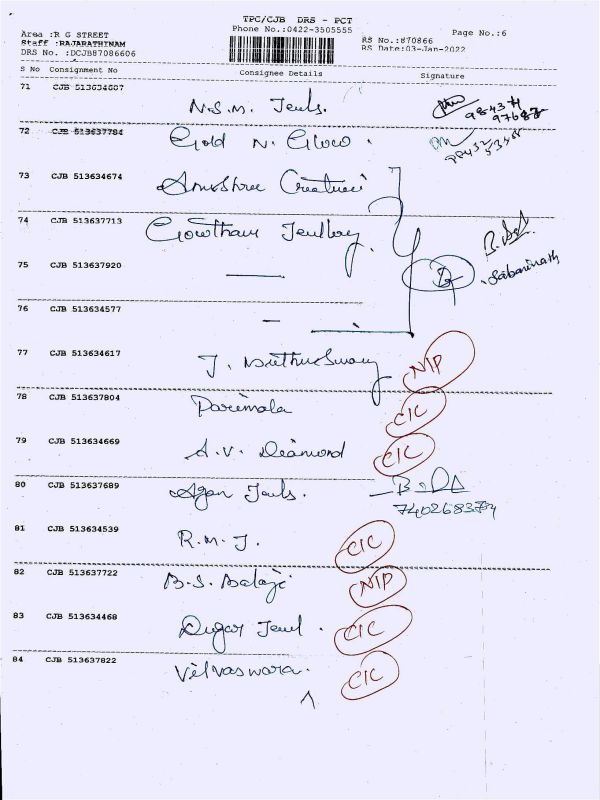 TPC/CJB DRS - PCT
Phone No.:0422-3505555
Page No.:6
Area :R G STREET
Staff :RAJARATHINAM
DRS No. :DCJB87086606
RS No.:870866
RS Date:03-Jan-2022
S No Consignment No Consignee Details Signature
71 CJB 513634607 N.S.M. Jeuls.
72 CJB 513637784 Gold N. Glow.
73 CJB 513634674 Anushree Creations
74 CJB 513637713 Gowtham Jeullery
75 CJB 513637920 Sabarinath
76 CJB 513634577
77 CJB 513634617 J. Muthuswamy NIP
78 CJB 513637804 Parimala CIC
79 CJB 513634669 A.V. Diamond CIC
80 CJB 513637689 Jeuls.
81 CJB 513634539 R.M.J. CIC
82 CJB 513637722 B.S. Balaji NIP
83 CJB 513634468 Dugar Jeul. CIC
84 CJB 513637822 CIC